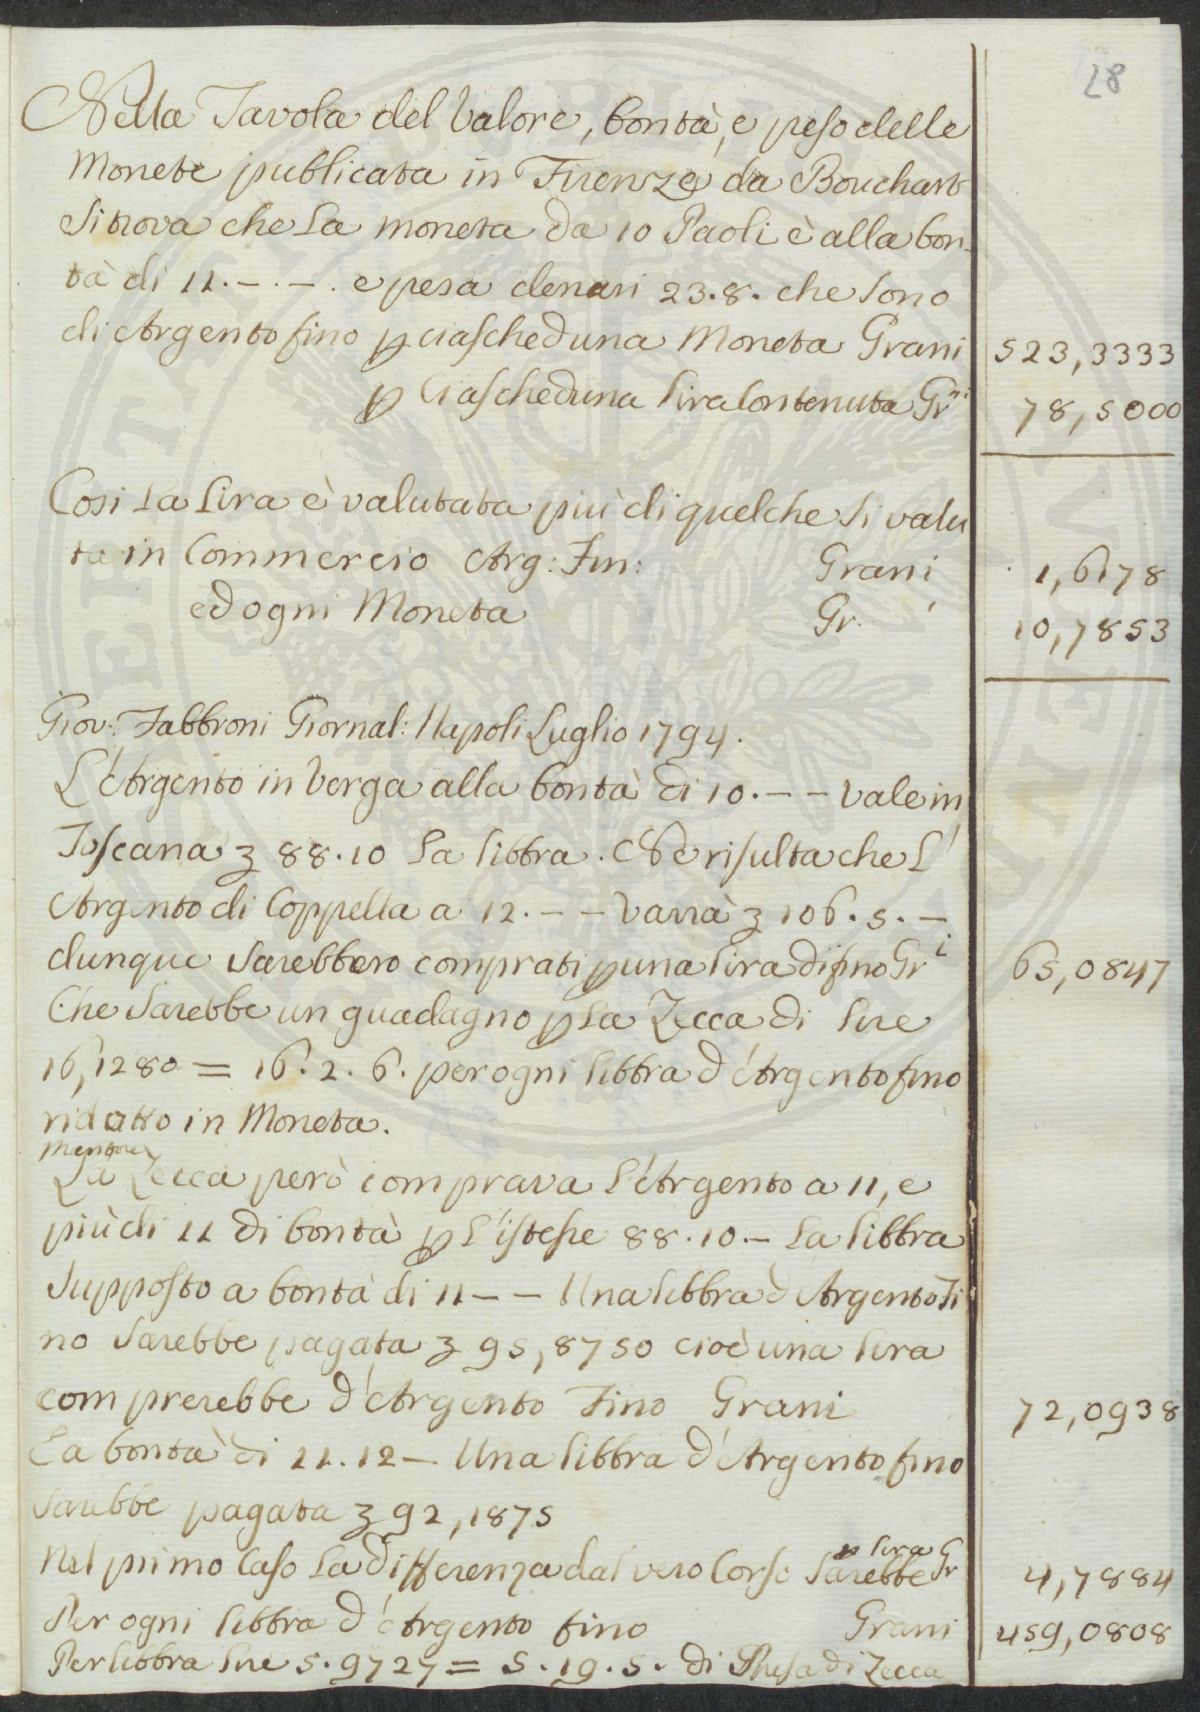 28
Nella Tavola del Valore, bontà, e peso delle
Monete publicata in Firenze da Bouchart
si trova che la moneta da 10 Paoli è alla bon-
tà di 11.-.-. e pesa denari 23.8. che sono
di Argento fino p ciascheduna Moneta Grani 523,3333
p Ciascheduna lira Contenuta Gr.ni 78,5000
Cosi la lira è valutata più di quelche si valu
ta in Commercio Arg: Fin: Grani 1,6178
ed ogni Moneta Gr. 10,7853
Giov: Fabbroni Giornal: Napoli Luglio 1794.
L'Argento in Verga alla bontà di 10.-- Vale in
Toscana ʒ 88.10 la libbra. Ne risulta che l'
Argento di Coppella a 12.-- Varrà ʒ 106.5.-
dunque sarebbero comprati p una lira di fino Gr.i 65,0847
Che sarebbe un guadagno p la Zecca di lire
16,1280 = 16.2.6. per ogni libbra d'Argento fino
ridotto in Moneta.
mentre
La Zecca però comprava l'Argento a 11, e
più di 11 di bontà p l'istesse 88.10.- la libbra
supposto a bontà di 11-- Una libbra d'Argento Fi
no sarebbe pagata ʒ 95,8750 cioè una lira
comprerebbe d'Argento Fino Grani 72,0938
La bontà di 11.12-. Una libbra d'Argento fino
sarebbe pagata ʒ 92,1875
p lira
Nel primo Caso la differenza dal vero Corso sarebbe Gr 4,7884
Per ogni libbra d'Argento fino Grani 459,0808
Per libbra lire 5.9727 = 5.19.5. di Spesa di Zecca